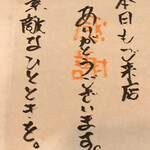 本日もご来店
ありがとうございます。
素敵なひとときを。
感謝